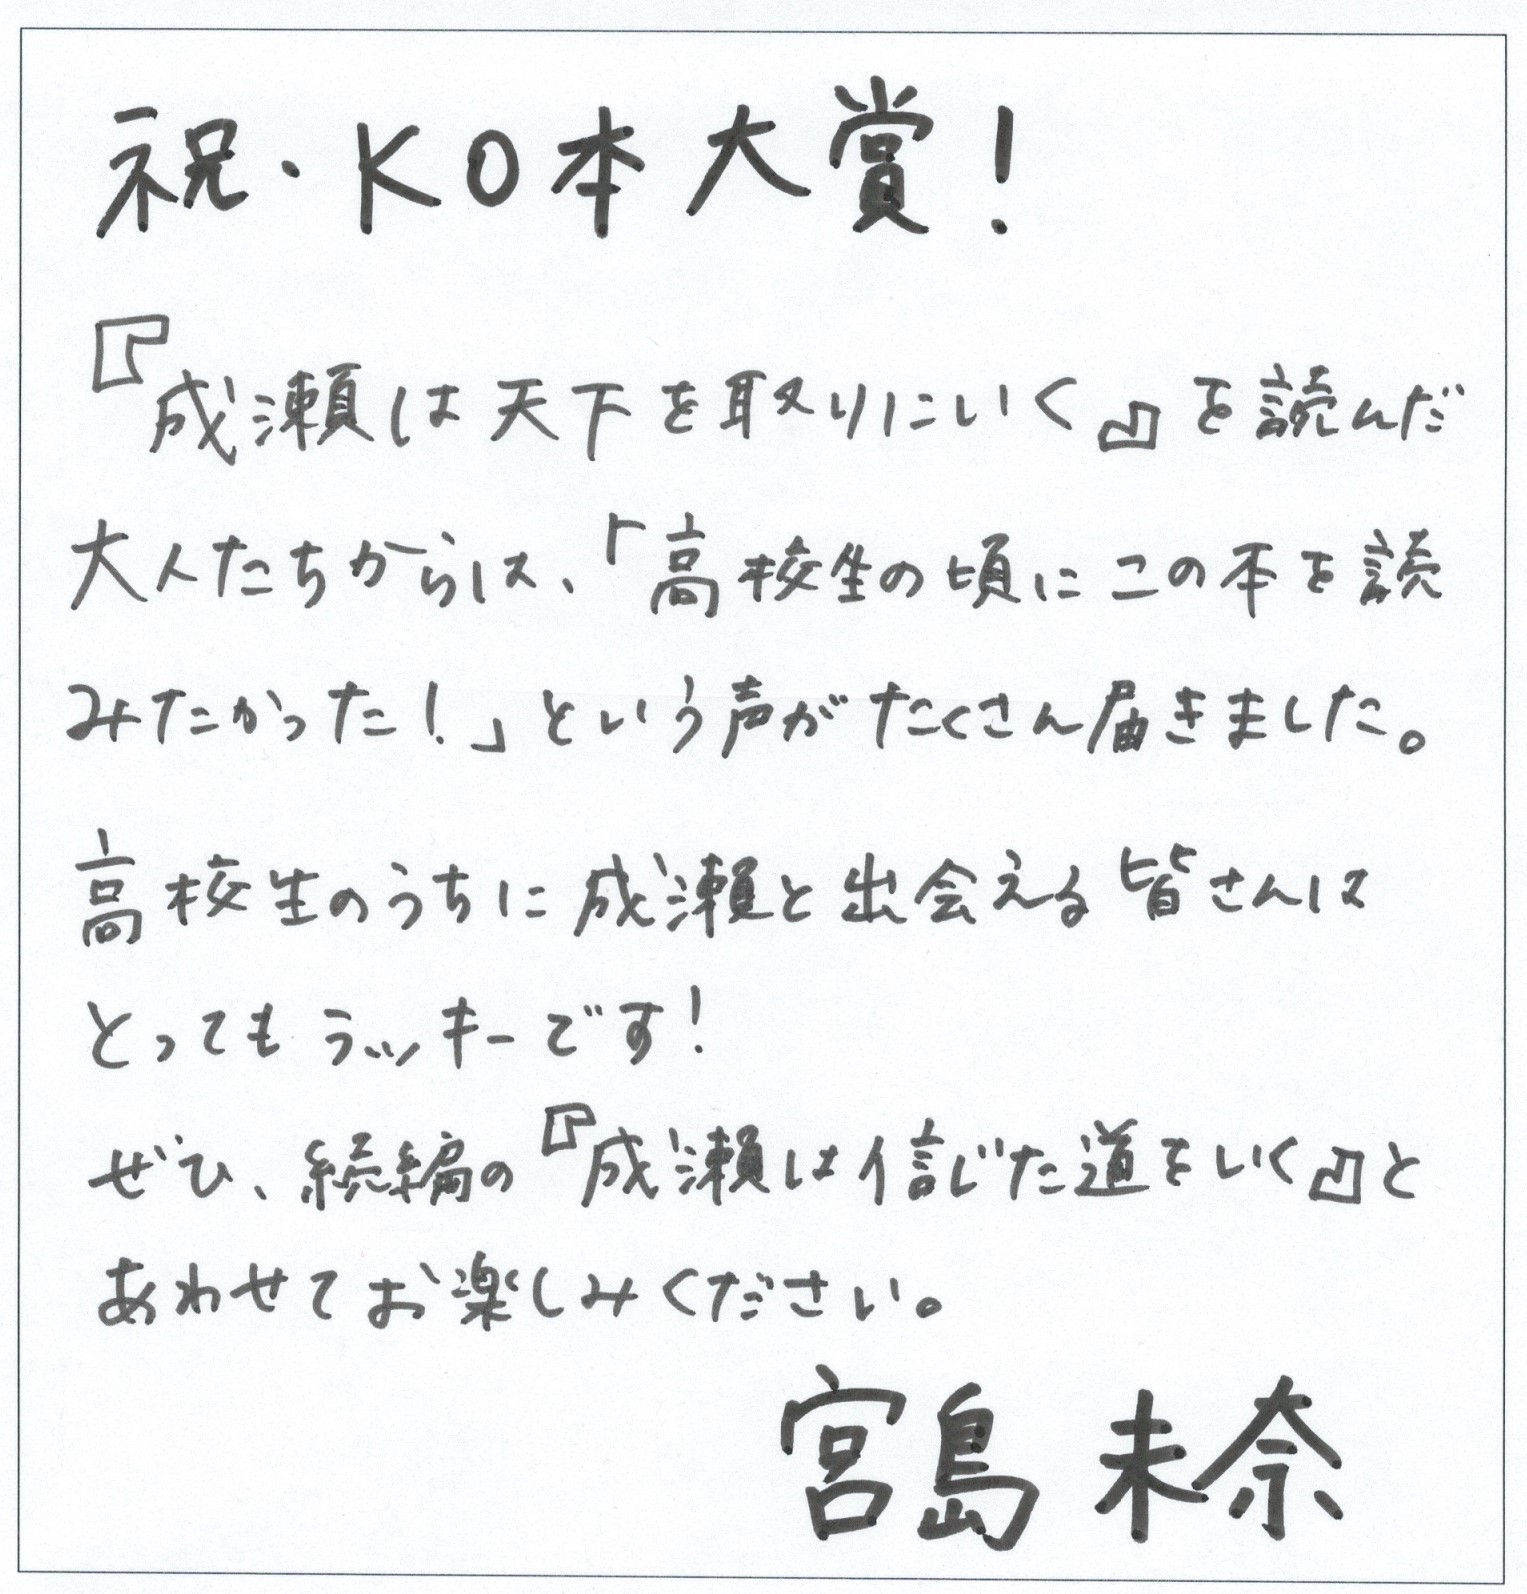 祝・KO本大賞!
『成瀬は天下を取りにいく』を読んだ
大人たちからは、「高校生の頃にこの本を読
みたかった!」という声がたくさん届きました。
高校生のうちに成瀬と出会える皆さんは
とってもラッキーです!
ぜひ、続編の『成瀬は信じた道をいく』と
あわせてお楽しみください。
宮島未奈